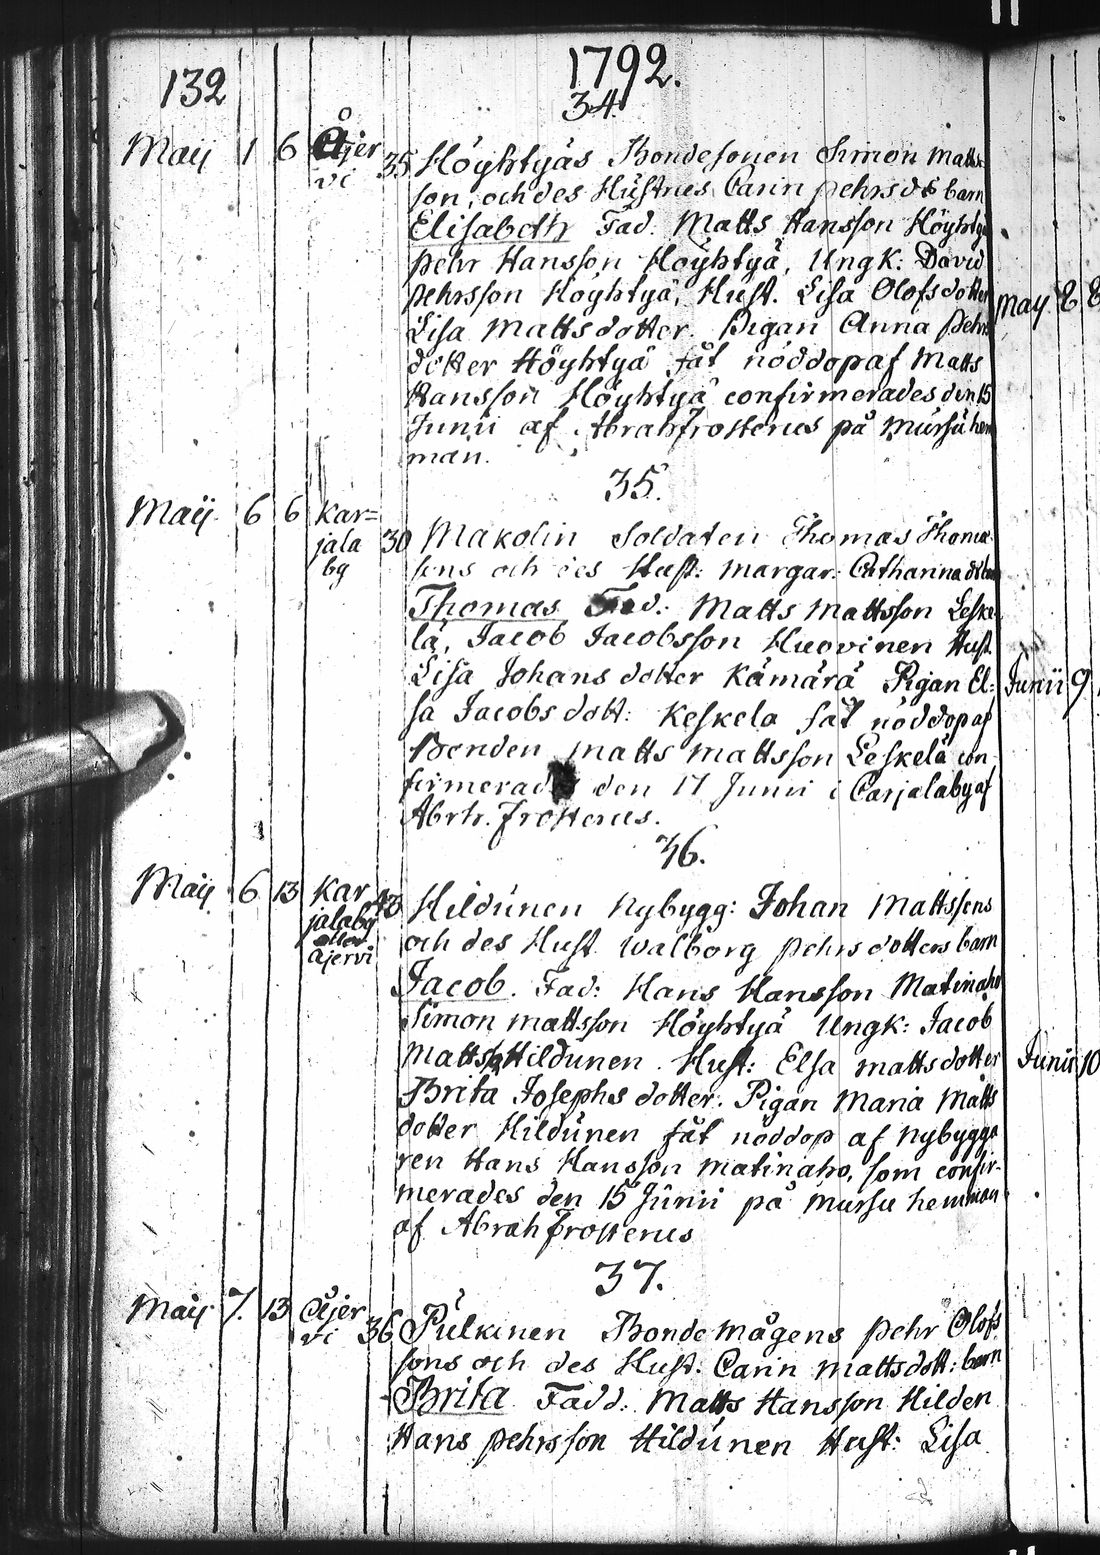 132
1792.
34.
Maij 1 6 Åjer
vi
35 Höyhtyäs Bondesonen Simon Matts
son, och des Hustrus Carin pehrsds barn
Elisabeth Fad. Matts Hansson Höyhtyä
pehr Hansson Höyhtyä, Ungk: David
pehrsson Höyhtyä, Hust. Lisa Olofsdotter
Lisa Mattsdotter. Pigan Anna pehrs
dotter Höyhtyä fåt nöddop af Matts
Hansson Höyhtyä confirmerades den 15
Junii af Abrah frosterus på Mursu hem
man.
35.
Maij 6 6 Kar=
jala
by
30 Makolin Soldaten Thomas Thoma
sons och des Hust: Margar: Catharina
Thomas Fad.: Matts Mattsson Leske
lä, Jacob Jacobsson Huovinen Hust.
Lisa Johans dotter Kämärä Pigan El:
sa Jacobs dott: Keskela fåt nöddop af
Bonden Matts Mattsson Leskelä con
firmerades den 17 Junii i Carjalaby af
Abrh. frosterus.
36.
Maij 6 13 Kar
jalaby
Ajervi
43 Hildunen Nybygg: Johan Mattssons
och des Hust. Walborg pehrs dotters barn
Jacob. Fad: Hans Hansson Matinaho
Simon Mattsson Höyhtyä Ungk: Jacob
Matts Hildunen. Hust: Elsa matts dotter
Brita Josephs dotter. Pigan Maria Matts
dotter Hildunen fåt nöddop af Nybygga
ren Hans Hansson Matinaho, som confir-
merades den 15 Junii på Mursu hemman
af Abrah frosterus
37.
Maij 7. 13 Åjer
vi
36 Pulkinen Bonde mågens pehr Olofs
sons och des Hust: Carin Mattsdott: barn
Brita Fadd: Matts Hansson Hilden
Hans pehrsson Hildunen Hust: Lisa
May 8
Junii 9
Junii 10